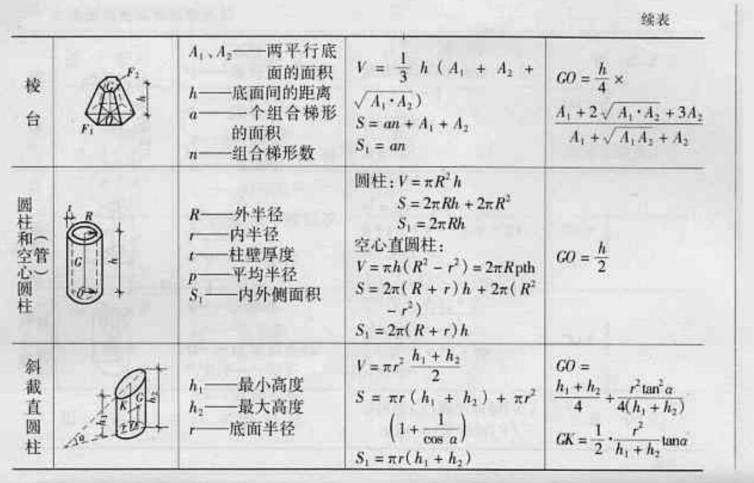 续表
棱台
F₂
G
h
O
F₁
A₁、A₂——两平行底
面的面积
h——底面间的距离
a——一个组合梯形
的面积
n——组合梯形数
V = 1/3 h ( A₁ + A₂ +
√(A₁·A₂) )
S = an + A₁ + A₂
S₁ = an
GO = h/4 ×
(A₁ + 2√(A₁·A₂) + 3A₂)/(A₁ + √(A₁A₂) + A₂)
圆柱和空心圆柱
(管)
t
R
G
h
O
R——外半径
r——内半径
t——柱壁厚度
p——平均半径
S₁——内外侧面积
圆柱:V = πR²h
S = 2πRh + 2πR²
S₁ = 2πRh
空心直圆柱:
V = πh(R² - r²) = 2πRpth
S = 2π(R + r)h + 2π(R²
- r²)
S₁ = 2π(R + r)h
GO = h/2
斜截直圆柱
K
G
h₂
h₁
α
h₁——最小高度
h₂——最大高度
r——底面半径
V = πr² (h₁ + h₂)/2
S = πr ( h₁ + h₂ ) + πr²
(1 + 1/cos α)
S₁ = πr(h₁ + h₂)
GO =
(h₁ + h₂)/4 + r²tan²α/4(h₁ + h₂)
GK = 1/2 · r²/(h₁ + h₂) tanα